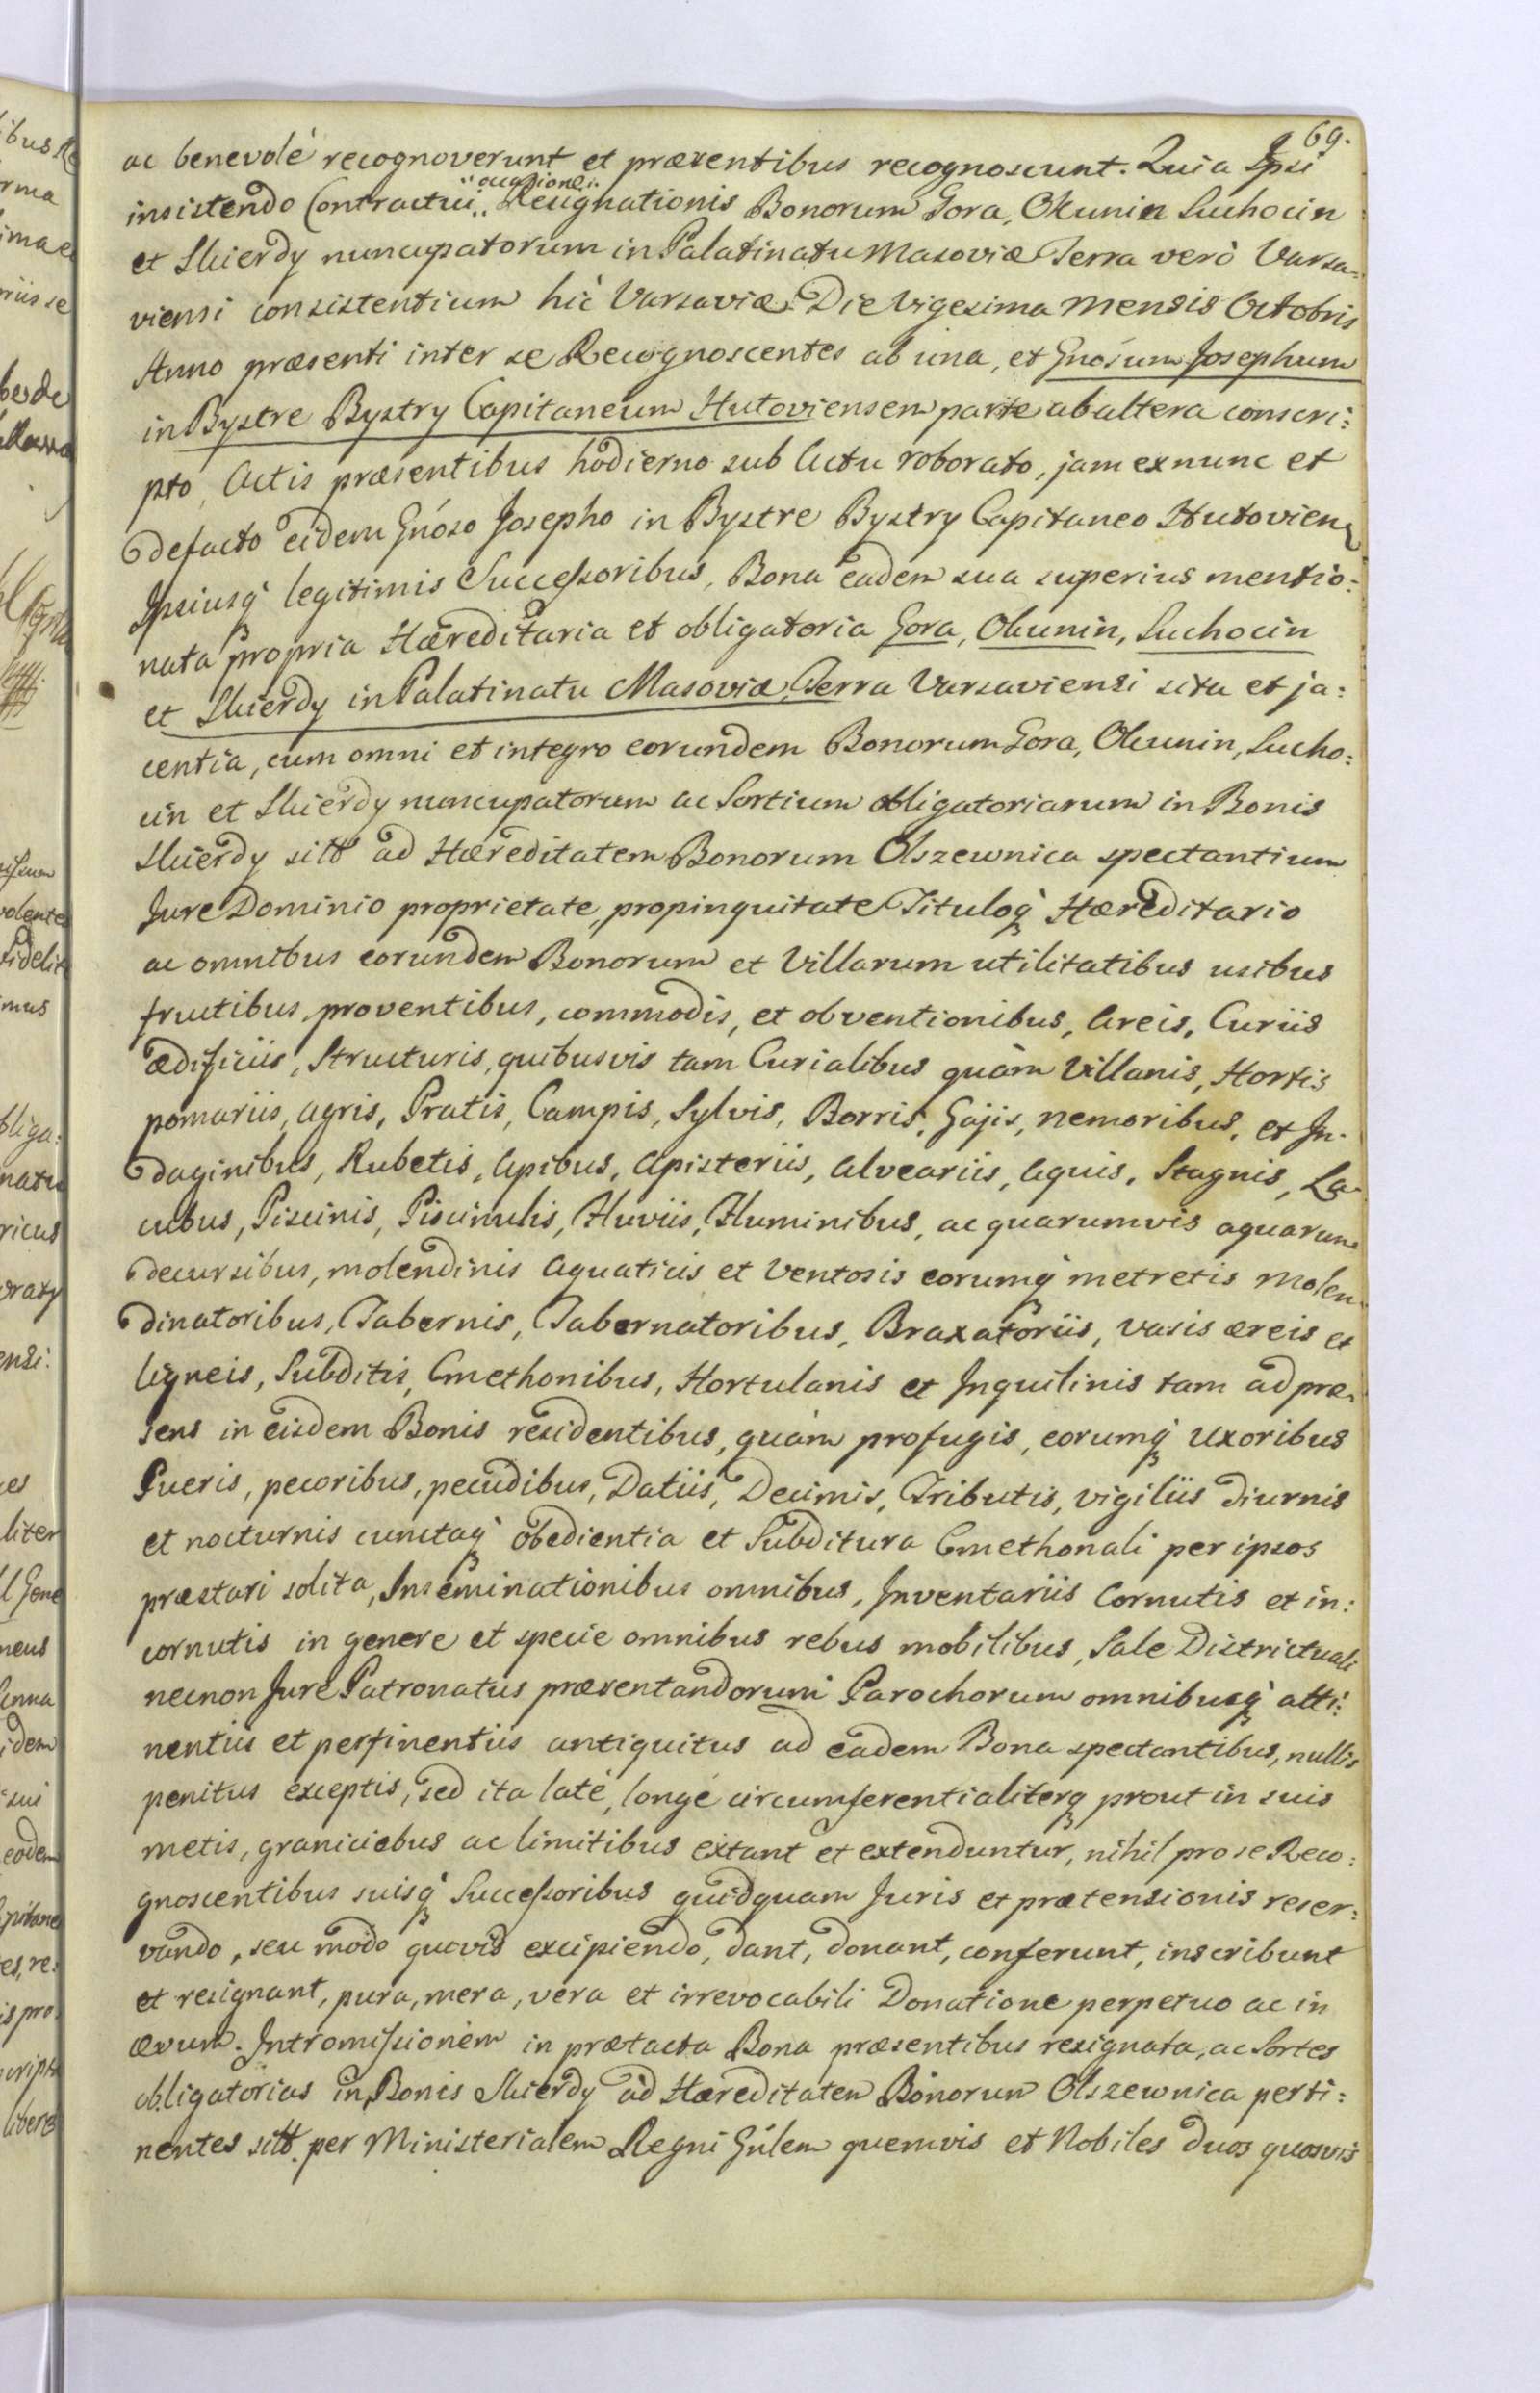 69.
ac benevolè recognoverunt et præsentibus recognoscunt. Quia Ipsi
insistendo Contractui „occasione„ Resignationis Bonorum Gora, Okunin Suchocin
et Skierdy nuncupatorum in Palatinatu Masoviæ Terra verò Varsa=
viensi consistentium hìc Varsaviæ Die Vigesima Mensis Octobris
Anno præsenti inter se Recognoscentes ab una, et Gnosum Josephum
in Bystre Bystry Capitaneum Hutoviensem parte ab altera conscri:
pto, Actis præsentibus hodierno sub Actu roborato, jam exnunc et
defacto eidem Gnoso Josepho in Bystre Bystry Capitaneo Hutovien
Ipsiusq legitimis Successoribus, Bona eadem sua superius mentio:
nata propria Hæreditaria et obligatoria Gora, Okunin, Suchocin
et Skierdy in Palatinatu Masoviæ Terra Varsaviensi sita et ja:
centia, cum omni et integro eorundem Bonorum Gora, Okunin, Sucho:
cin et Skierdy nuncupatorum ac Sortium obligatoriarum in Bonis
Skierdy sitt ad Hæreditatem Bonorum Olszewnica spectantium
Jure Dominio proprietate, propinquitate Tituloq Hæreditario
ac omnibus eorundem Bonorum et Villarum utilitatibus usibus
fructibus, proventibus, commodis, et obventionibus, Areis, Curiis
ædificiis, Structuris, quibusvis tam Curialibus quàm Villanis, Hortis
pomariis, agris, Pratis, Campis, Sylvis, Borris, Gajis, nemoribus, et In-
daginibus, Rubetis, Apibus, Apisteriis, alveariis, aquis, Stagnis, La-
cubus, Piscinis, Piscinulis, Fluviis, Fluminibus, ac quarumvis aquarum
decursibus, molendinis aquaticis et Ventosis eorumq metretis Molen-
dinatoribus, Tabernis, Tabernatoribus, Braxatoriis, vasis æreis et
ligneis, Subditis, Cmethonibus, Hortulanis et Inquilinis tam ad præ-
sens in eisdem Bonis residentibus, quàm profugis, eorumq Uxoribus
Pueris, pecoribus, pecudibus, Datiis, Decimis, Tributis, vigiliis diurnis
et nocturnis cunctaq obedientia et Subditura Cmethonali per ipsos
præstari solita, Inseminationibus omnibus, Inventariis Cornutis et in:
cornutis in genere et specie omnibus rebus mobilibus, Sale Districtuali
necnon Jure Patronatus præsentandorum Parochorum omnibusq atti:
nentiis et pertinentiis antiquitus ad eadem Bona spectantibus, nullis
penitus exceptis, sed ita latè, longè circumferentialiterq prout in suis
metis, graniciebus ac limitibus extant et extenduntur, nihil pro se Reco:
gnoscentibus suisq Successoribus quidquam Juris et prætensionis reser:
vando, seu modo quovis excipiendo, dant, donant, conferunt, inscribunt
et resignant, pura, mera, vera et irrevocabili Donatione perpetuo ac in
ævum. Intromissionem in prætacta Bona præsentibus resignata, ac Sortes
obligatorias in Bonis Skierdy ad Hæreditatem Bonorum Olszewnica perti:
nentes sitt. per Ministerialem Regni Gnlem quemvis et Nobiles duos quosvis